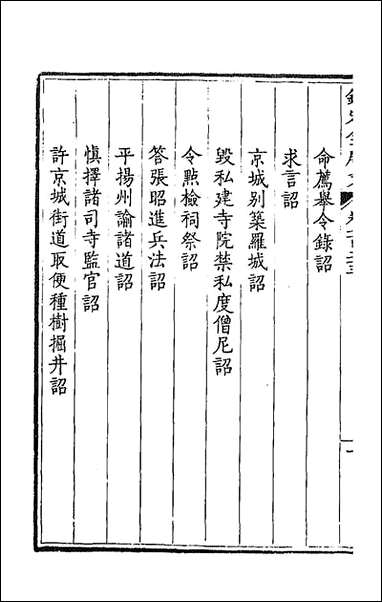 命薦舉令錄詔
求言詔
京城別築羅城詔
毀私建寺院禁私度僧尼詔
令㸃檢祠祭詔
答張昭進兵法詔
平揚州諭諸道詔
愼擇諸司寺監官詔
許京城街道取便種樹掘井詔